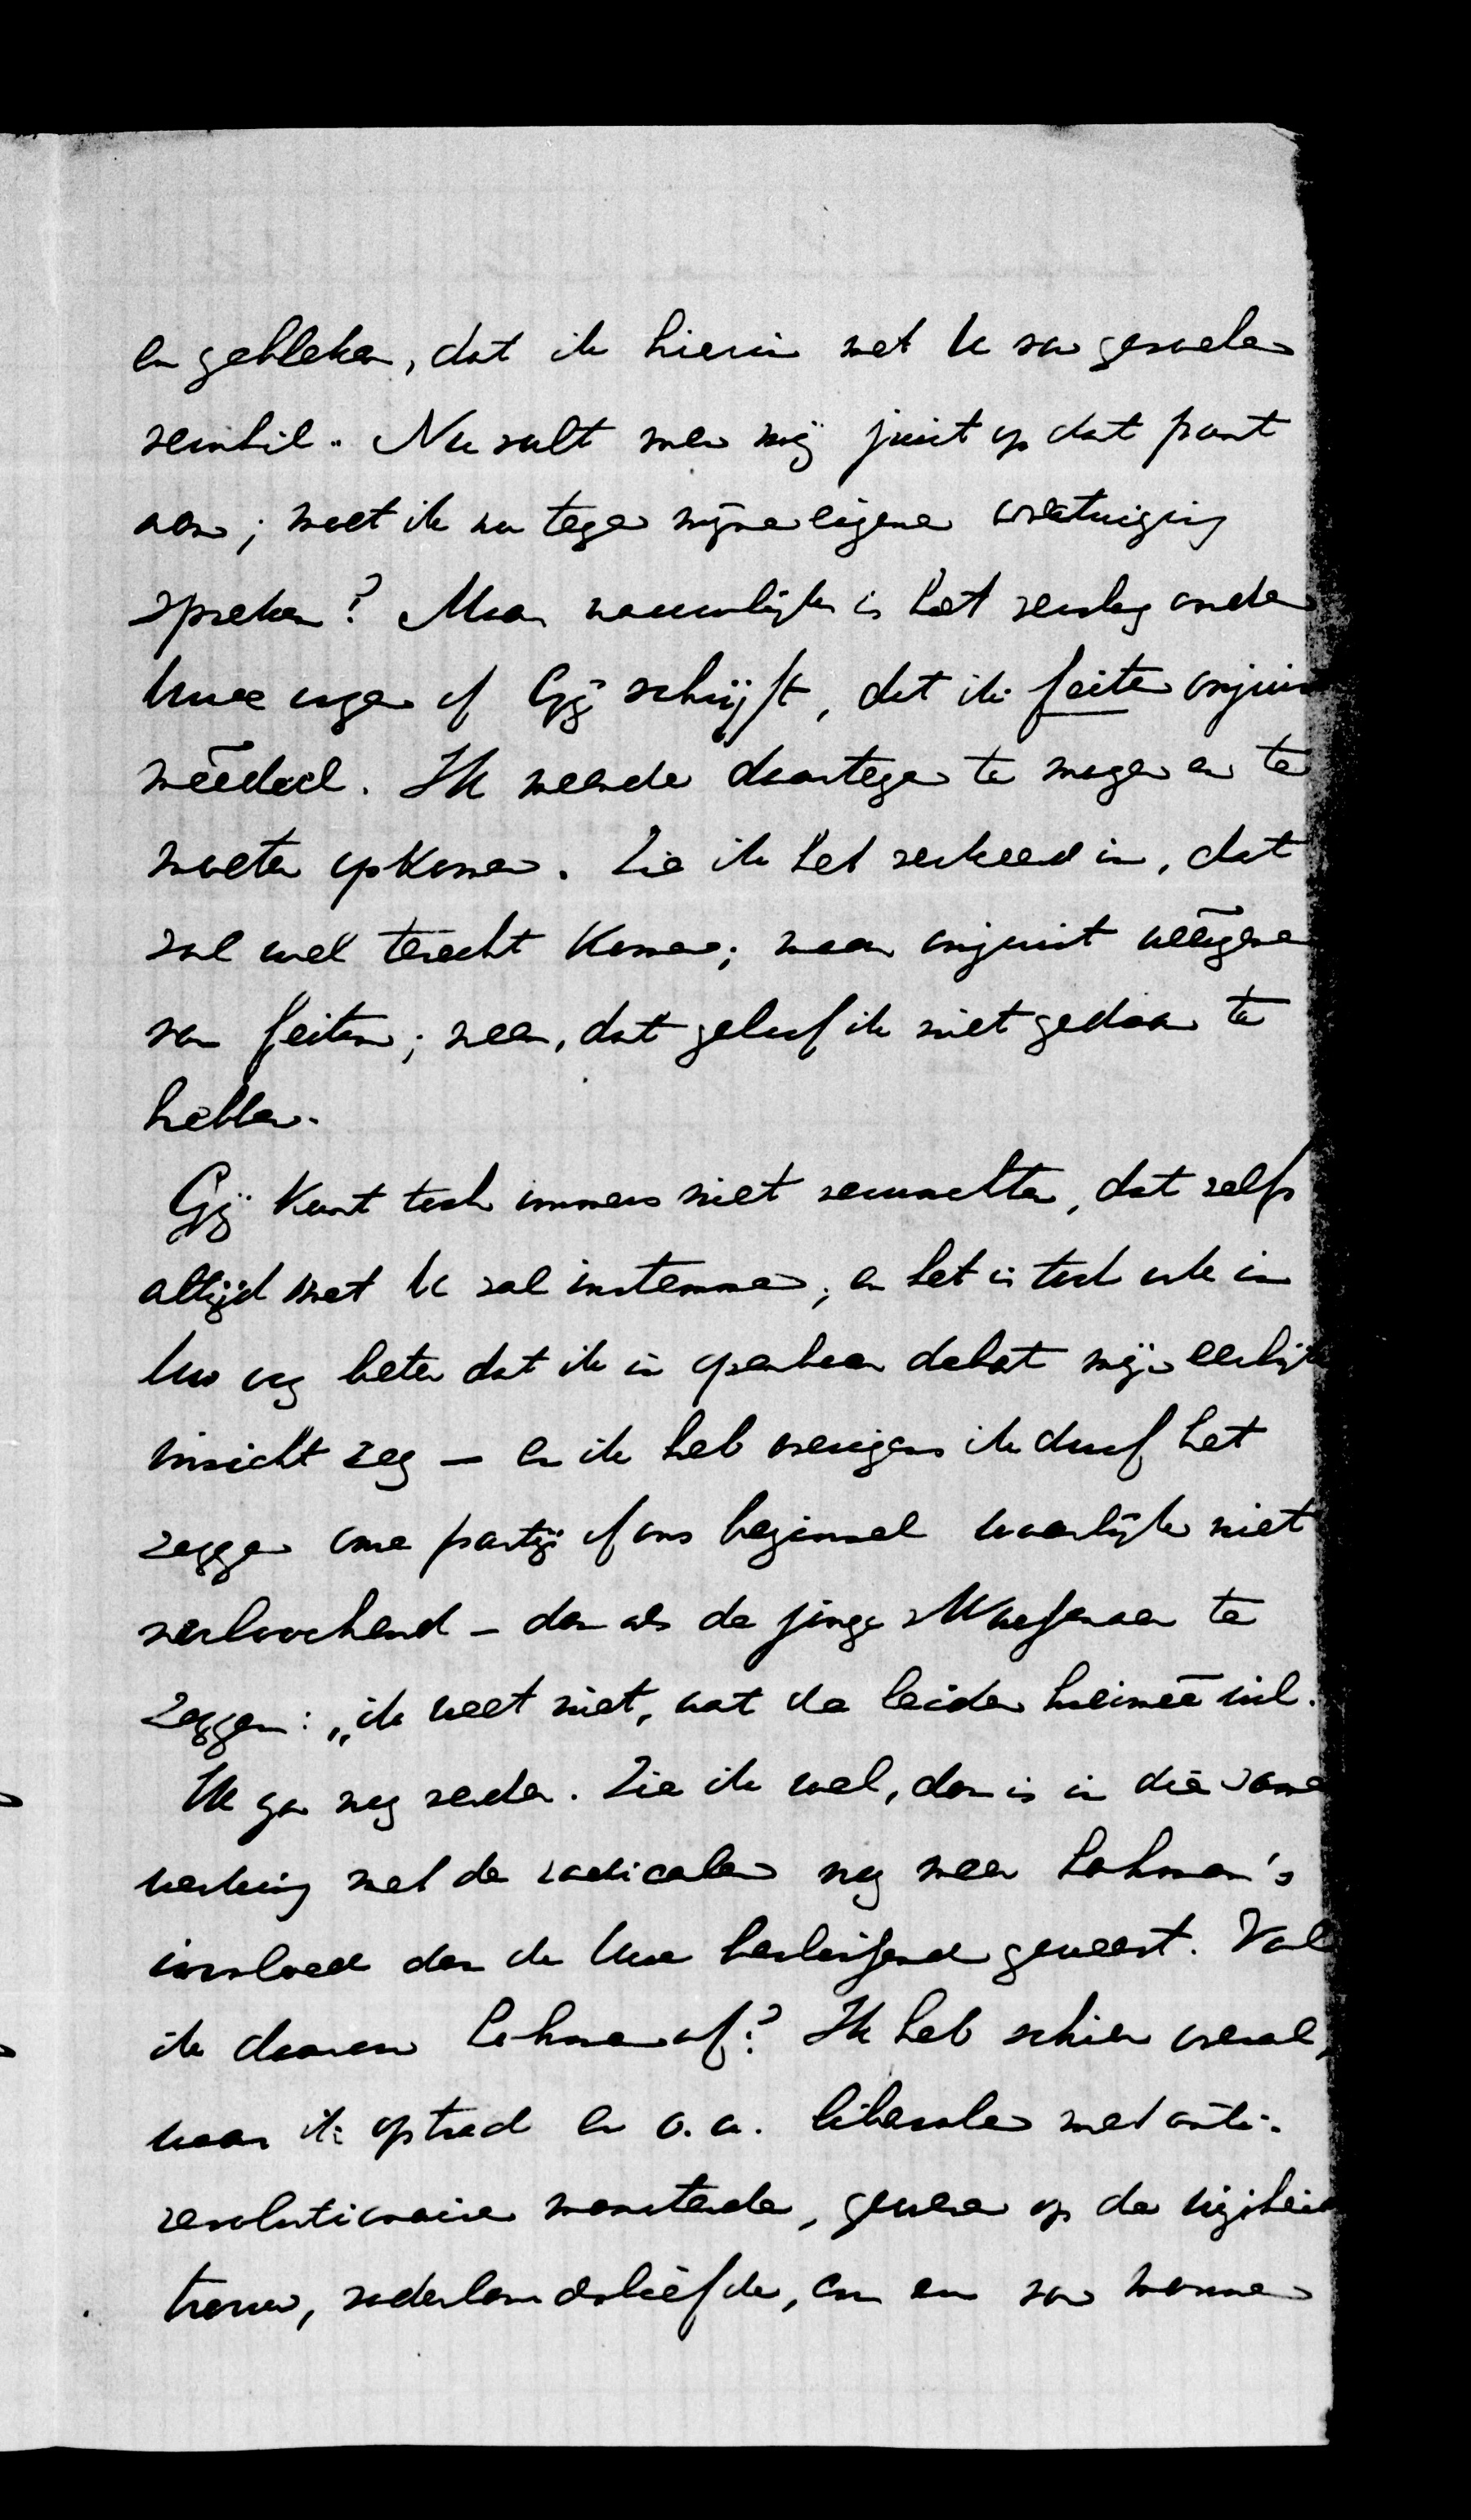 en gebleken, dat ik hierin met U van gevoelen
verschil. Nu valt men mij juist op dat punt
aan; moet ik nu tegen mijne eigene overtuiging
spreken? Maar nauwlijks is het verslag onder
Uwe oogen of Gij schrijft, dat ik feiten onjuist
meedeel. Ik meende daartegen te mogen en te
moeten opkomen. Zie ik het verkeerd in, dat
zal wel terecht komen; maar onjuist weêrgeven
van feiten; neen, dat geloof ik niet gedaan te
hebben.
Gij kunt toch immers niet verwachten, dat zelfs
altijd met U zal instemmen; en het is toch ook in
Uw oog beter dat ik in openbaar debat mijn eerlijk
inzicht zeg — en ik heb overigens ik durf het
zeggen onze partij of ons beginsel waarlijk niet
verloochend — dan als de jonge Wassenaer te
zeggen: „ik weet niet, wat de leider hiermeê wil.
Ik ga nog verder. Zie ik wel, dan is in die samen
werking met de radicalen nog meer Lohman's
invloed dan de Uwe beslissend geweest. Val
ik daarom Lohman af? Ik heb schier overal,
waar ik optrad en o.a. liberalen met anti-
revolutionairen monsterde, gewezen op de vrijheid
trouw, vaderlandsliefde, enz en van mannen